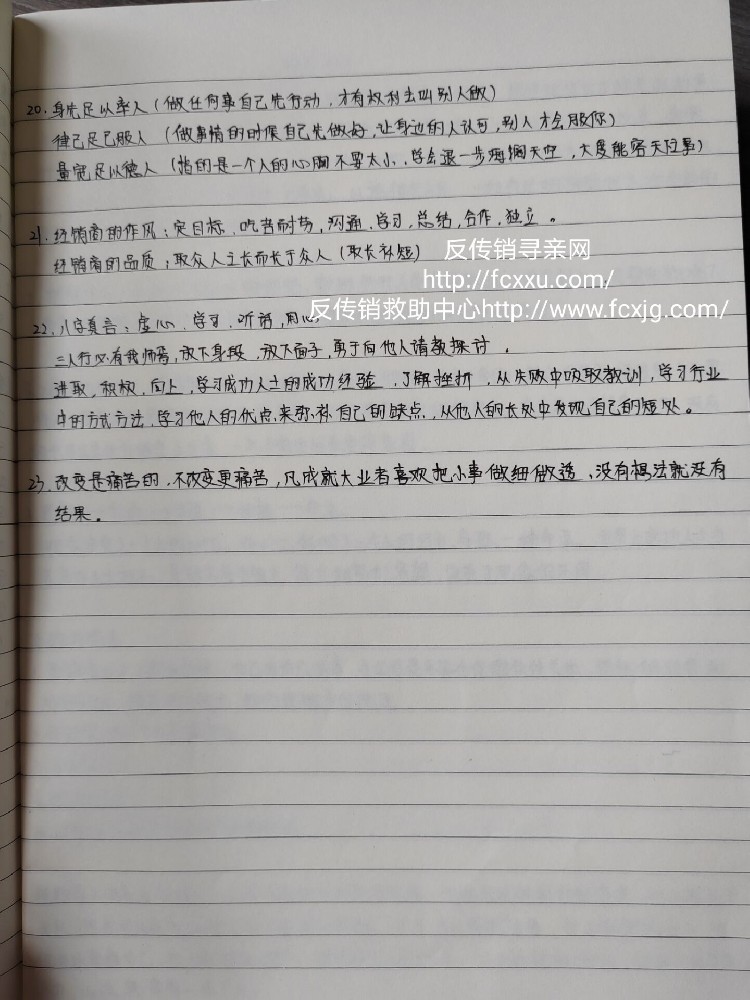 20. 身先足以率人（做任何事自己先行动，才有权利去叫别人做）
律己足已服人（做事情的时候自己先做好，让身边的人认可，别人才会服你）
量宽足以德人（指的是一个人的心胸不要太小，学会退一步海阔天空，大度能容天下事）
21. 经销商的作风：定目标、吃苦耐劳，沟通，学习，总结，合作，独立。
经销商的品质：取众人之长而长于众人（取长补短）
反传销寻亲网
http://fcxxu.com/
反传销救助中心http://www.fcxjg.com/
22. 八字真言：虚心、学习、听话，用心
三人行必有我师焉，放下身段，放下面子，勇于向他人请教探讨。
进取，积极，向上，学习成功人士的成功经验，了解挫折，从失败中吸取教训，学习行业
中的方式方法，学习他人的优点来弥补自己的缺点，从他人的长处中发现自己的短处。
23. 改变是痛苦的，不改变更痛苦，凡成就大业者喜欢把小事做细做透，没有想法就没有
结果。